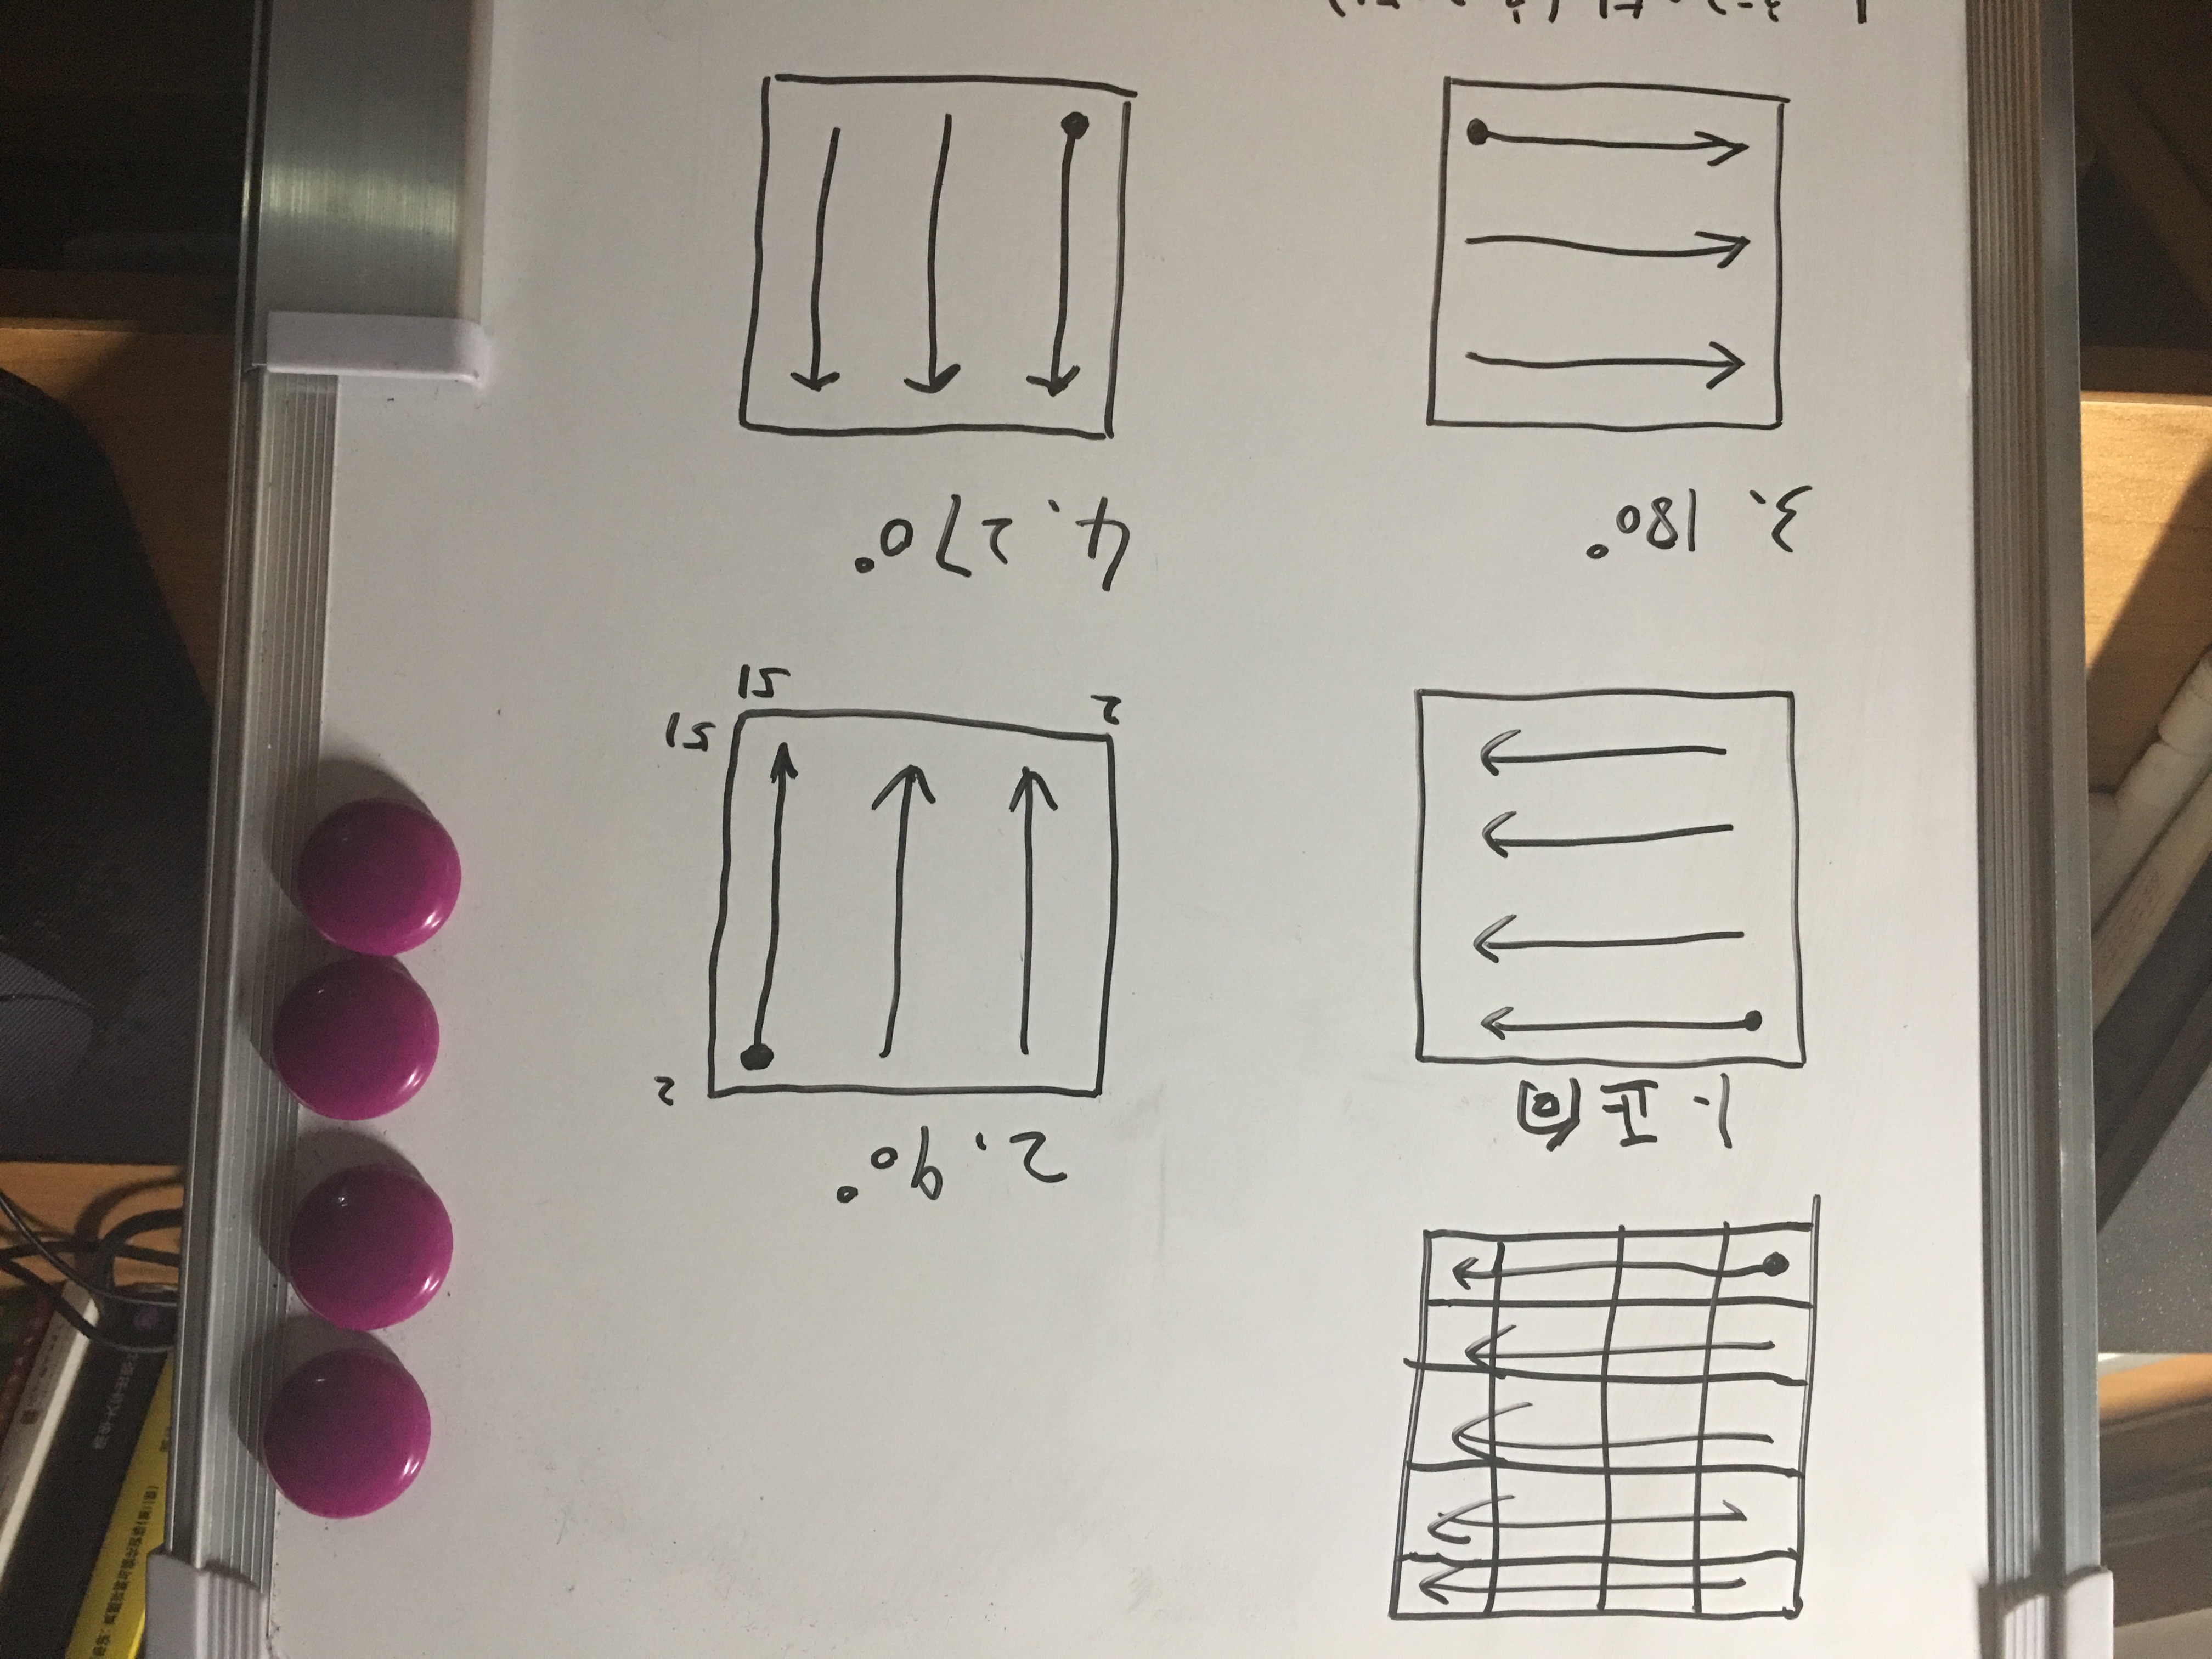 1. 正向
2、90°
2
51
2
51
3、180°
4、270°